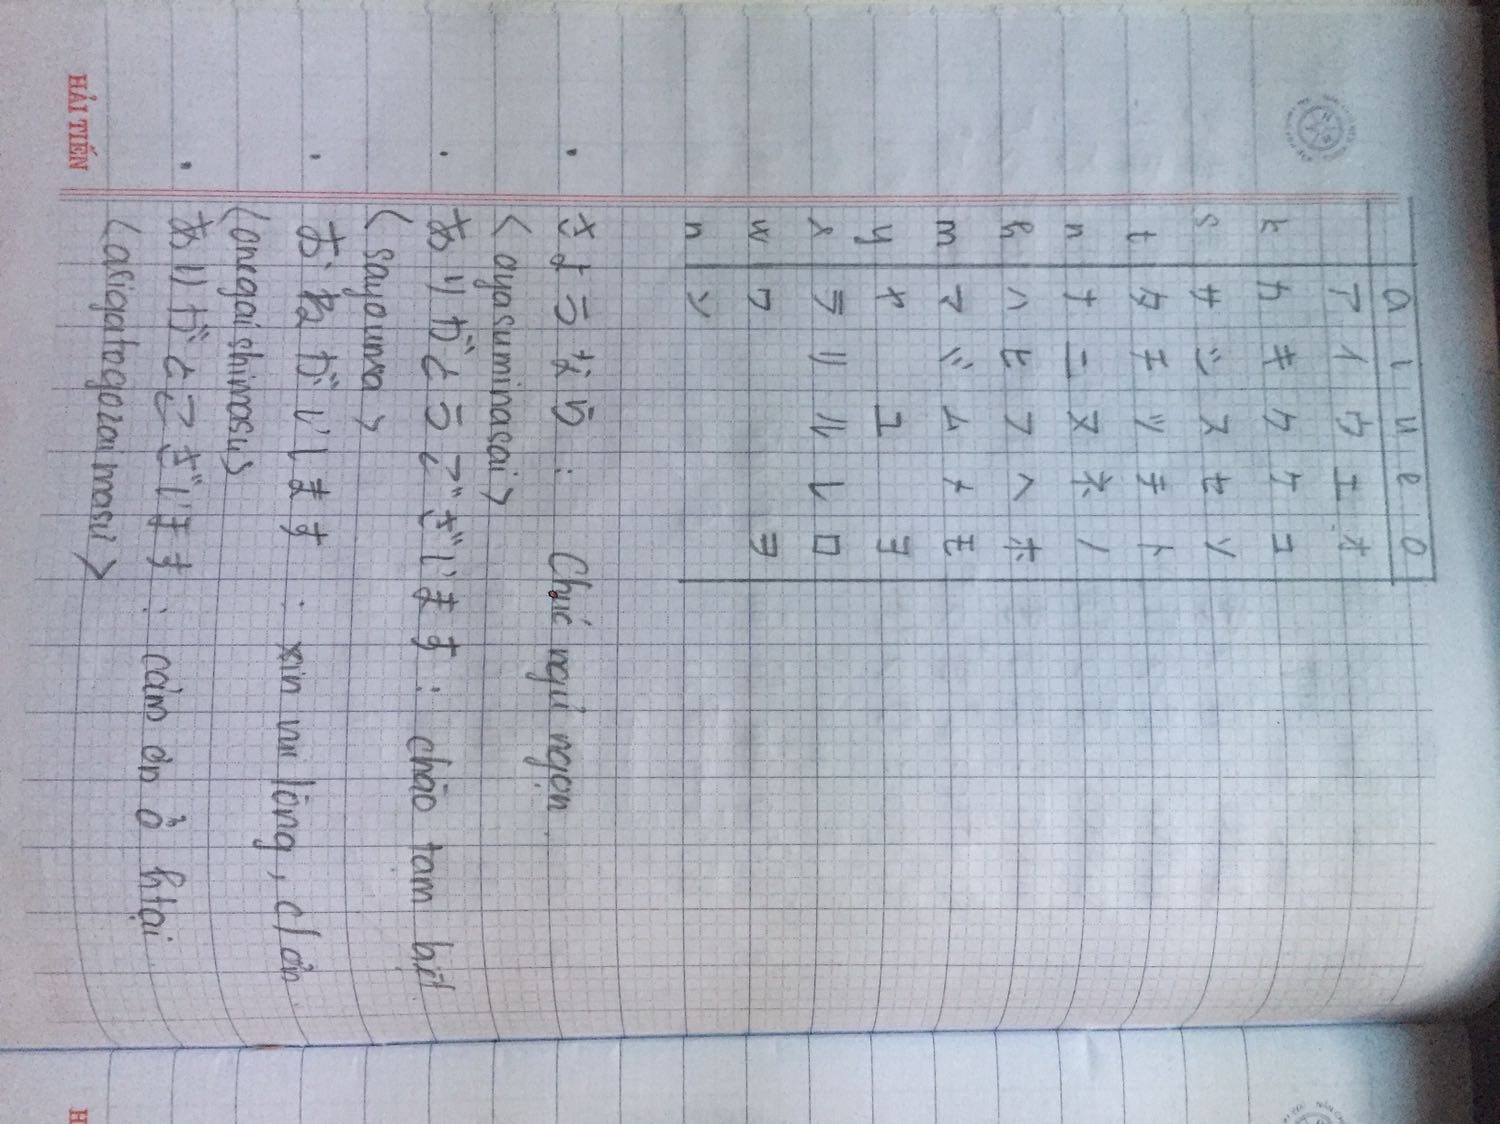 a i u e o
ア イ ウ エ オ
k カ キ ク ケ コ
s サ シ ス セ ソ
t タ チ ツ テ ト
n ナ ニ ヌ ネ ノ
h ハ ヒ フ ヘ ホ
m マ ミ ム メ モ
y ヤ ユ ヨ
r ラ リ ル レ ロ
w ワ ヲ
n ン
• さようなら : Chúc ngủ ngon.
< oyasuminasai >
• ありがとうございます : chào tạm biệt
< sayounra >
• おねがいします : xin vui lòng, c/ơn
< onegaishimasu >
• ありがとございます : cảm ơn ở htại
< arigatogozaimasu >
HẢI TIẾN